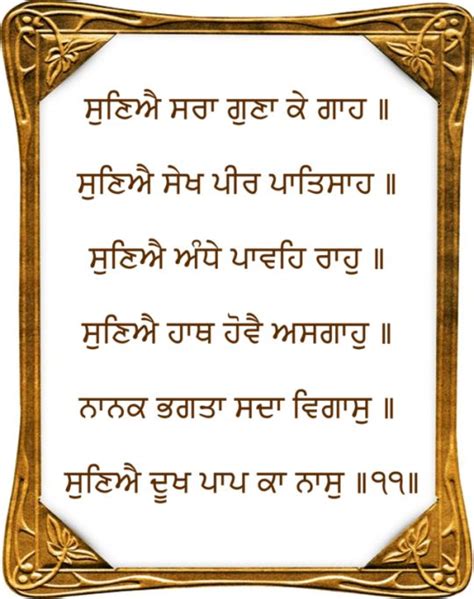 ਸੁਣਿਐ ਸਰਾ ਗੁਣਾ ਕੇ ਗਾਹ ॥
ਸੁਣਿਐ ਸੇਖ ਪੀਰ ਪਾਤਿਸਾਹ ॥
ਸੁਣਿਐ ਅੰਧੇ ਪਾਵਹਿ ਰਾਹੁ ॥
ਸੁਣਿਐ ਹਾਥ ਹੋਵੈ ਅਸਗਾਹੁ ॥
ਨਾਨਕ ਭਗਤਾ ਸਦਾ ਵਿਗਾਸੁ ॥
ਸੁਣਿਐ ਦੂਖ ਪਾਪ ਕਾ ਨਾਸੁ ॥੧੧॥